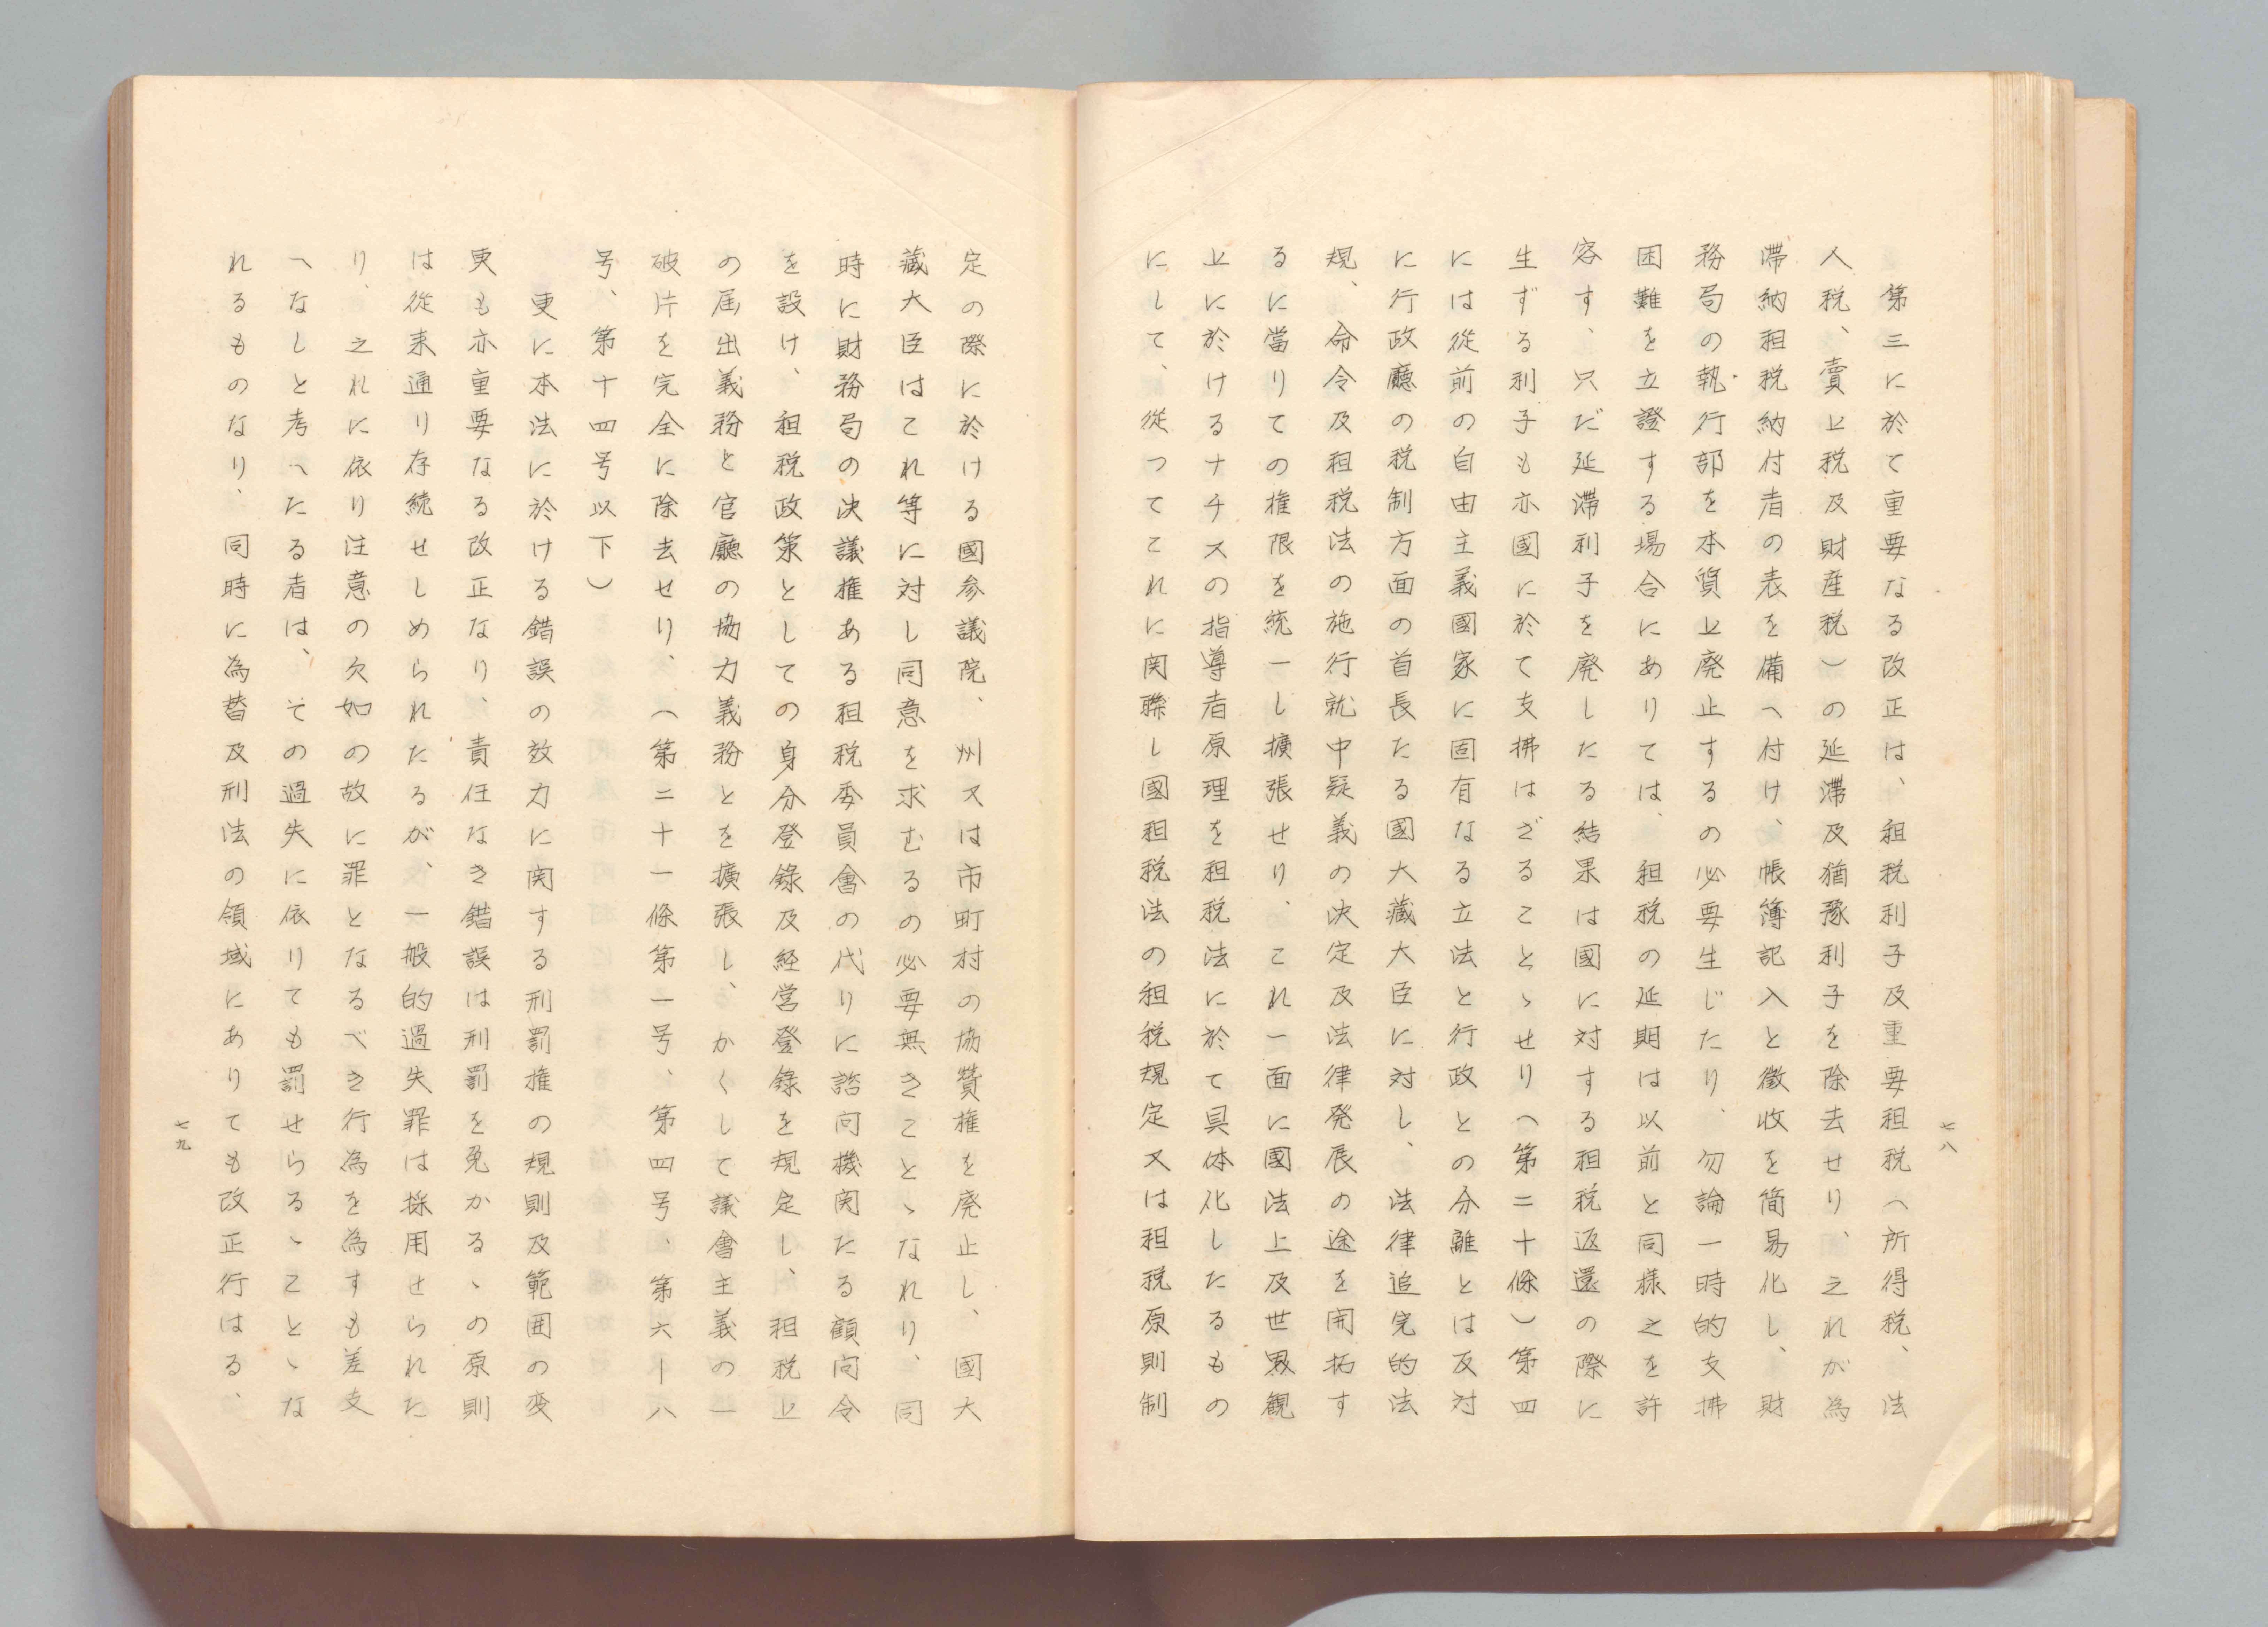 第三に於て重要なる改正は、租税利子及重要租税（所得税、法
人税、賣上税及財産税）の延滞及猶豫利子を除去せり、之れが為
滞納租税納付者の表を備へ付け、帳簿記入と徴收を简易化し、財
務局の執行部を本質上廃止するの必要生じたり、勿論一時的支拂
困難を立證する場合にありては、租税の延期は以前と同様之を許
容す、只だ延滞利子を廃したる結果は國に対する租税返還の際に
生ずる利子も亦國に於て支拂はざることゝせり（第二十條）第四
には從前の自由主義國家に固有なる立法と行政との分離とは反対
に行政廳の税制方面の首長たる國大藏大臣に対し、法律追完的法
規、命令及租税法の施行就中疑義の决定及法律発展の途を開拓す
るに當りての権限を統一し擴張せり、これ一面に國法上及世界観
上に於けるナチスの指導者原理を租税法に於て具体化したるもの
にして、從つてこれに関聯し國租税法の租税規定又は租税原則制
七八
定の際に於ける國参議院、州又は市町村の協賛権を廃止し、國大
藏大臣はこれ等に対し同意を求むるの必要無きことゝなれり、同
時に財務局の决議権ある租税委員會の代りに諮问機関たる顧问令
を設け、租税政策としての身分登錄及経営登錄を規定し、租税上
の届出義務と官廳の協力義務とを擴張し、かくして議會主義の一
破片を完全に除去せり、（第二十一條第一号、第四号、第六－八
号、第十四号以下）
更に本法に於ける錯誤の效力に関する刑罰権の規則及範囲の変
更も亦重要なる改正なり、責任なき錯誤は刑罰を免かるゝの原則
は從来通り存続せしめられたるが、一般的過失罪は採用せられた
り、之れに依り注意の欠如の故に罪となるべき行為を為すも差支
へなしと考へたる者は、その過失に依りても罰せらるゝことゝな
れるものなり、同時に為替及刑法の領域にありても改正行はる、
七九